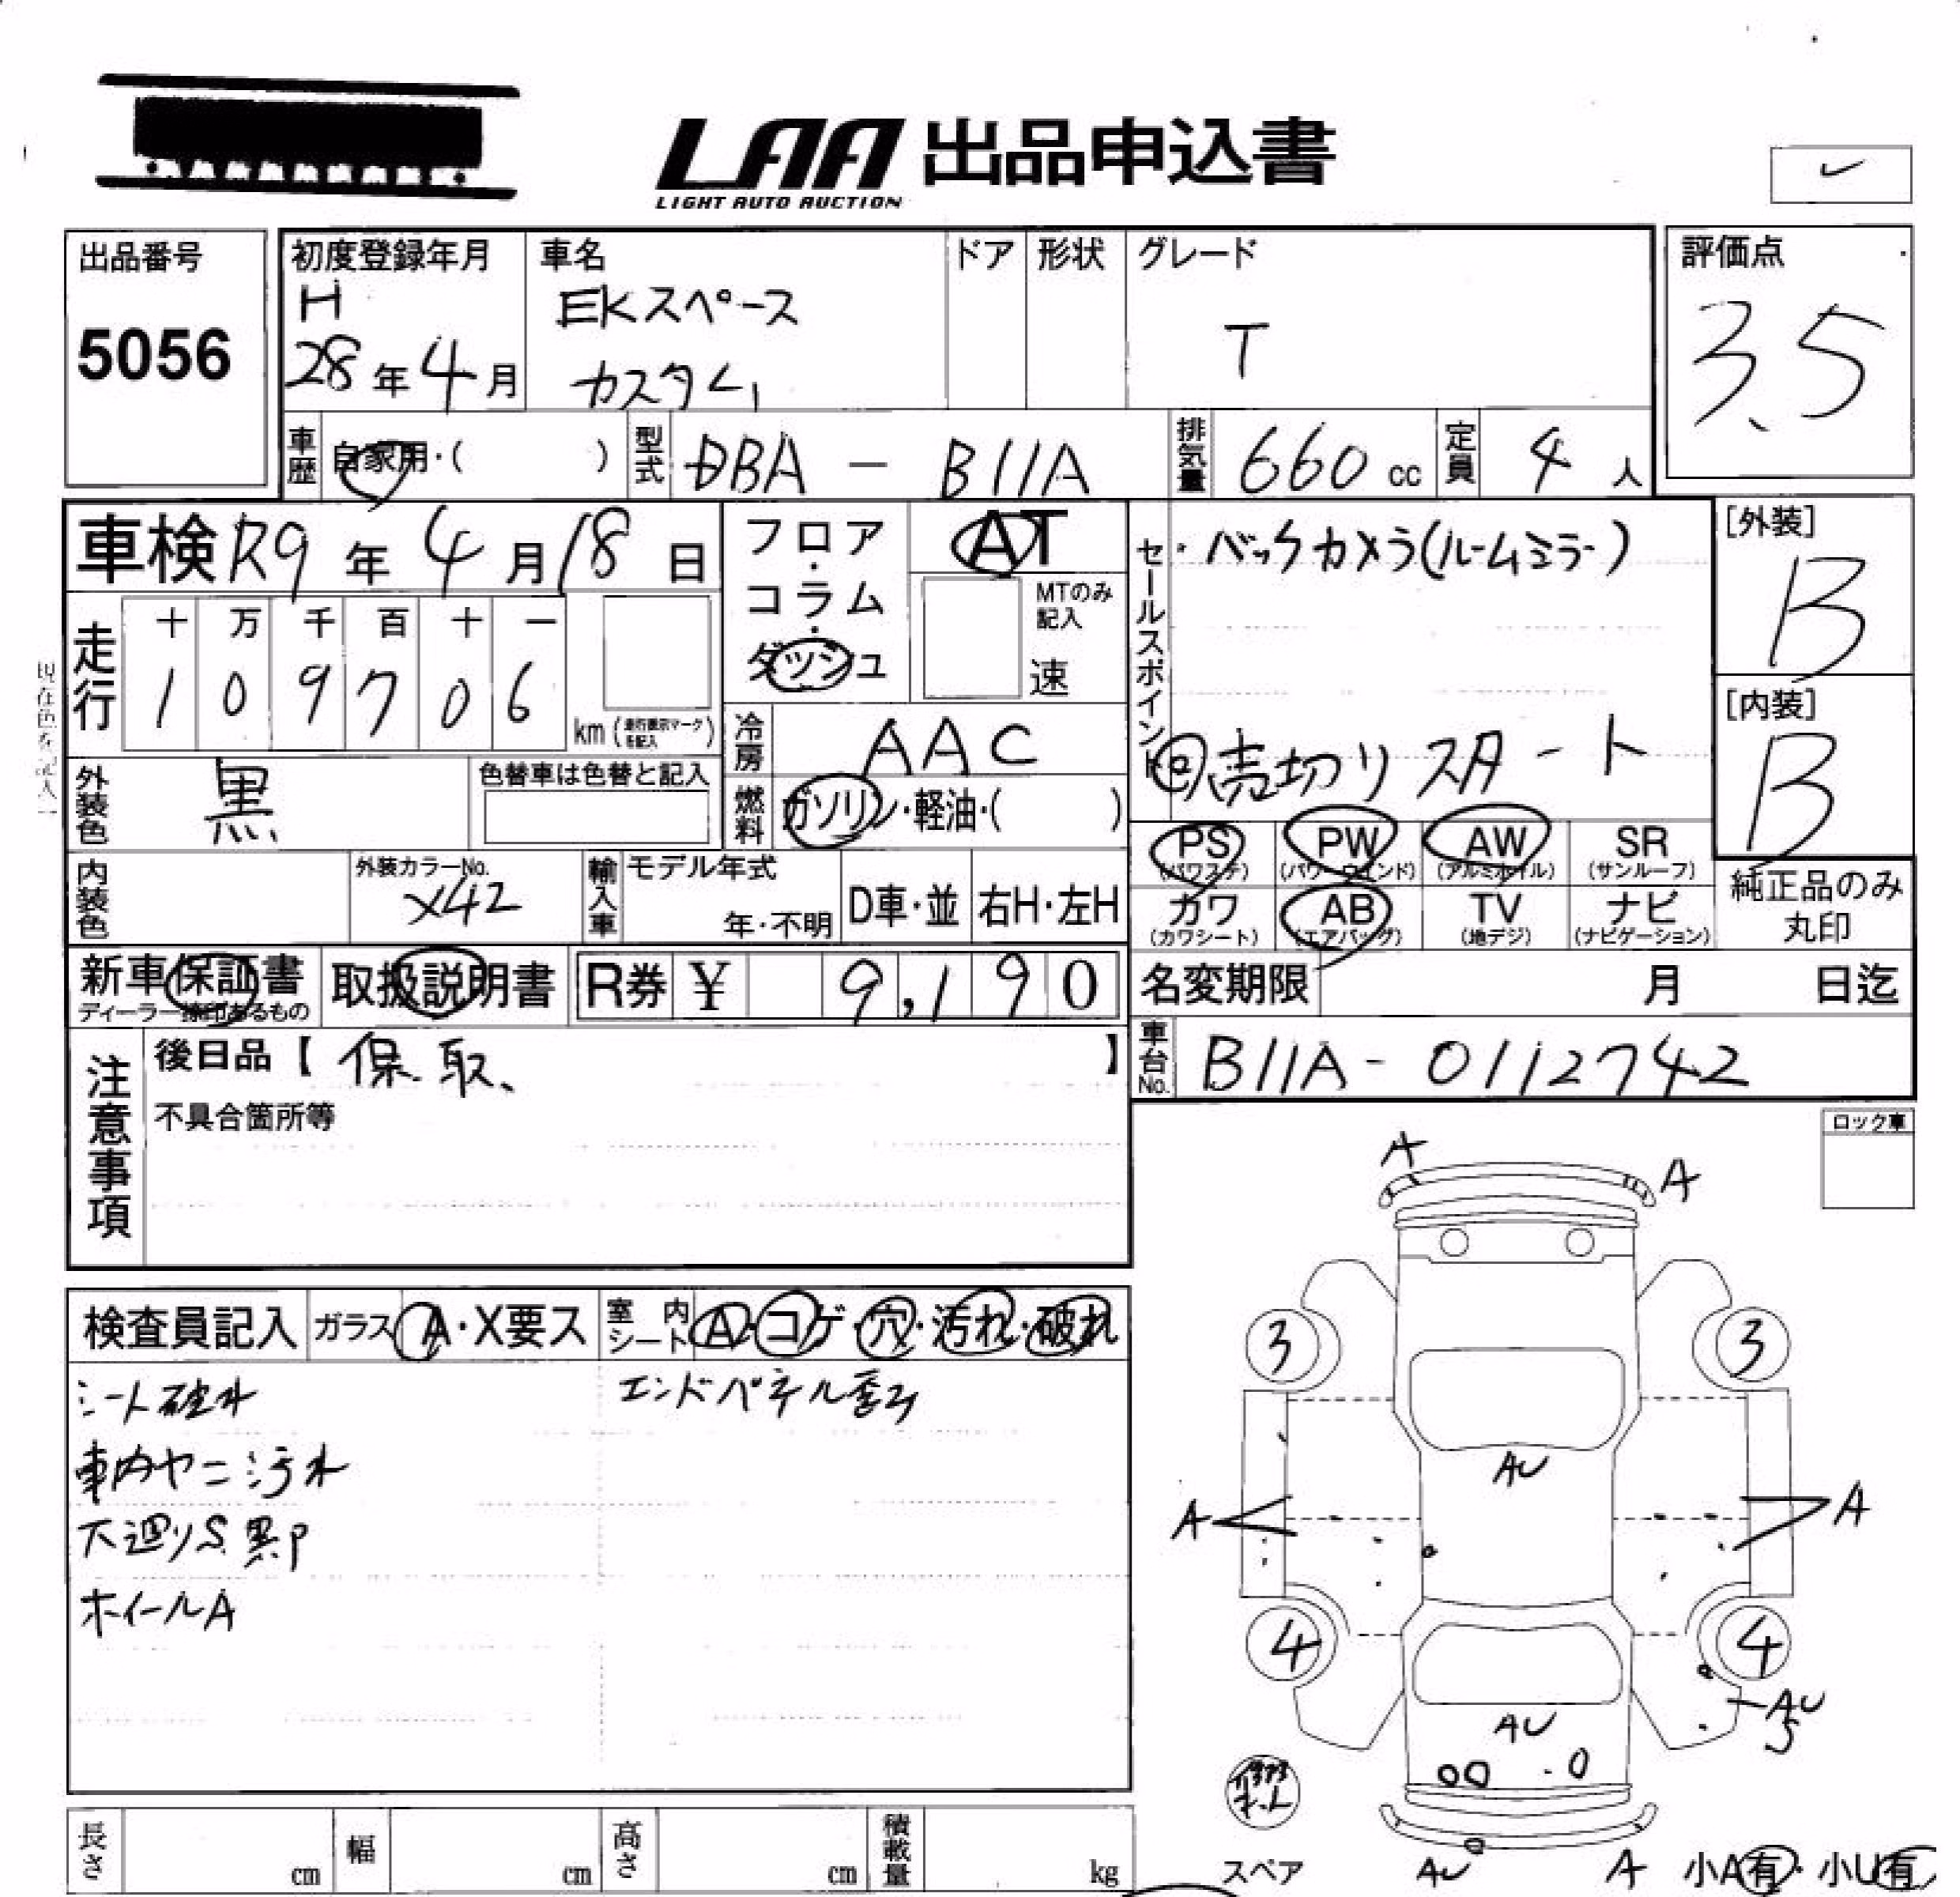 LAA 出品申込書
LIGHT AUTO AUCTION
出品番号
5056
初度登録年月
H
28年4月
車名
EKスペース
カスタム
ドア
形状
グレード
T
評価点
3.5
車歴
自家用・( )
型式
DBA - B11A
排気量
660 cc
定員
4 人
車検 R9年4月18日
フロア・コラム・ダッシュ
AT
MTのみ記入
速
セールスポイント
・バックカメラ(ルームミラー)
売切りスタート
[外装]
B
[内装]
B
走行
十 万 千 百 十 一
1 0 9 7 0 6
km (走行表示マークを記入)
現在色を記入
冷房
AAC
燃料
ガソリン・軽油・( )
外装色
黒
色替車は色替と記入
内装色
外装カラーNo.
X42
輸入車
モデル年式
年・不明
D車・並
右H・左H
PS (パワステ)
PW (パワーウインド)
AW (アルミホイル)
SR (サンルーフ)
カワ (カワシート)
AB (エアバッグ)
TV (地デジ)
ナビ (ナビゲーション)
純正品のみ丸印
新車保証書
ディーラー捺印あるもの
取扱説明書
R券 ¥ 9,190
名変期限 月 日迄
車台No.
B11A-0112742
注意事項
後日品【 保.取、 】
不具合箇所等
ロック車
検査員記入
ガラス A・X要ス
室内シート A・コゲ・穴・汚れ・破れ
シート破れ
車内ヤニ汚れ
下廻りS.黒P
ホイールA
エンドパネル歪み
A
A
3
3
AU
A
A
4
4
AU
S
AU
スペア
AU
A
小A有・小U有
長さ cm
幅 cm
高さ cm
積載量 kg